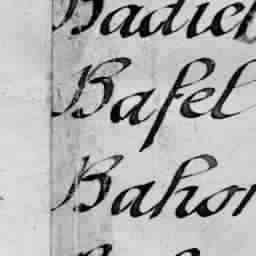 Badich
Basel
Bahor